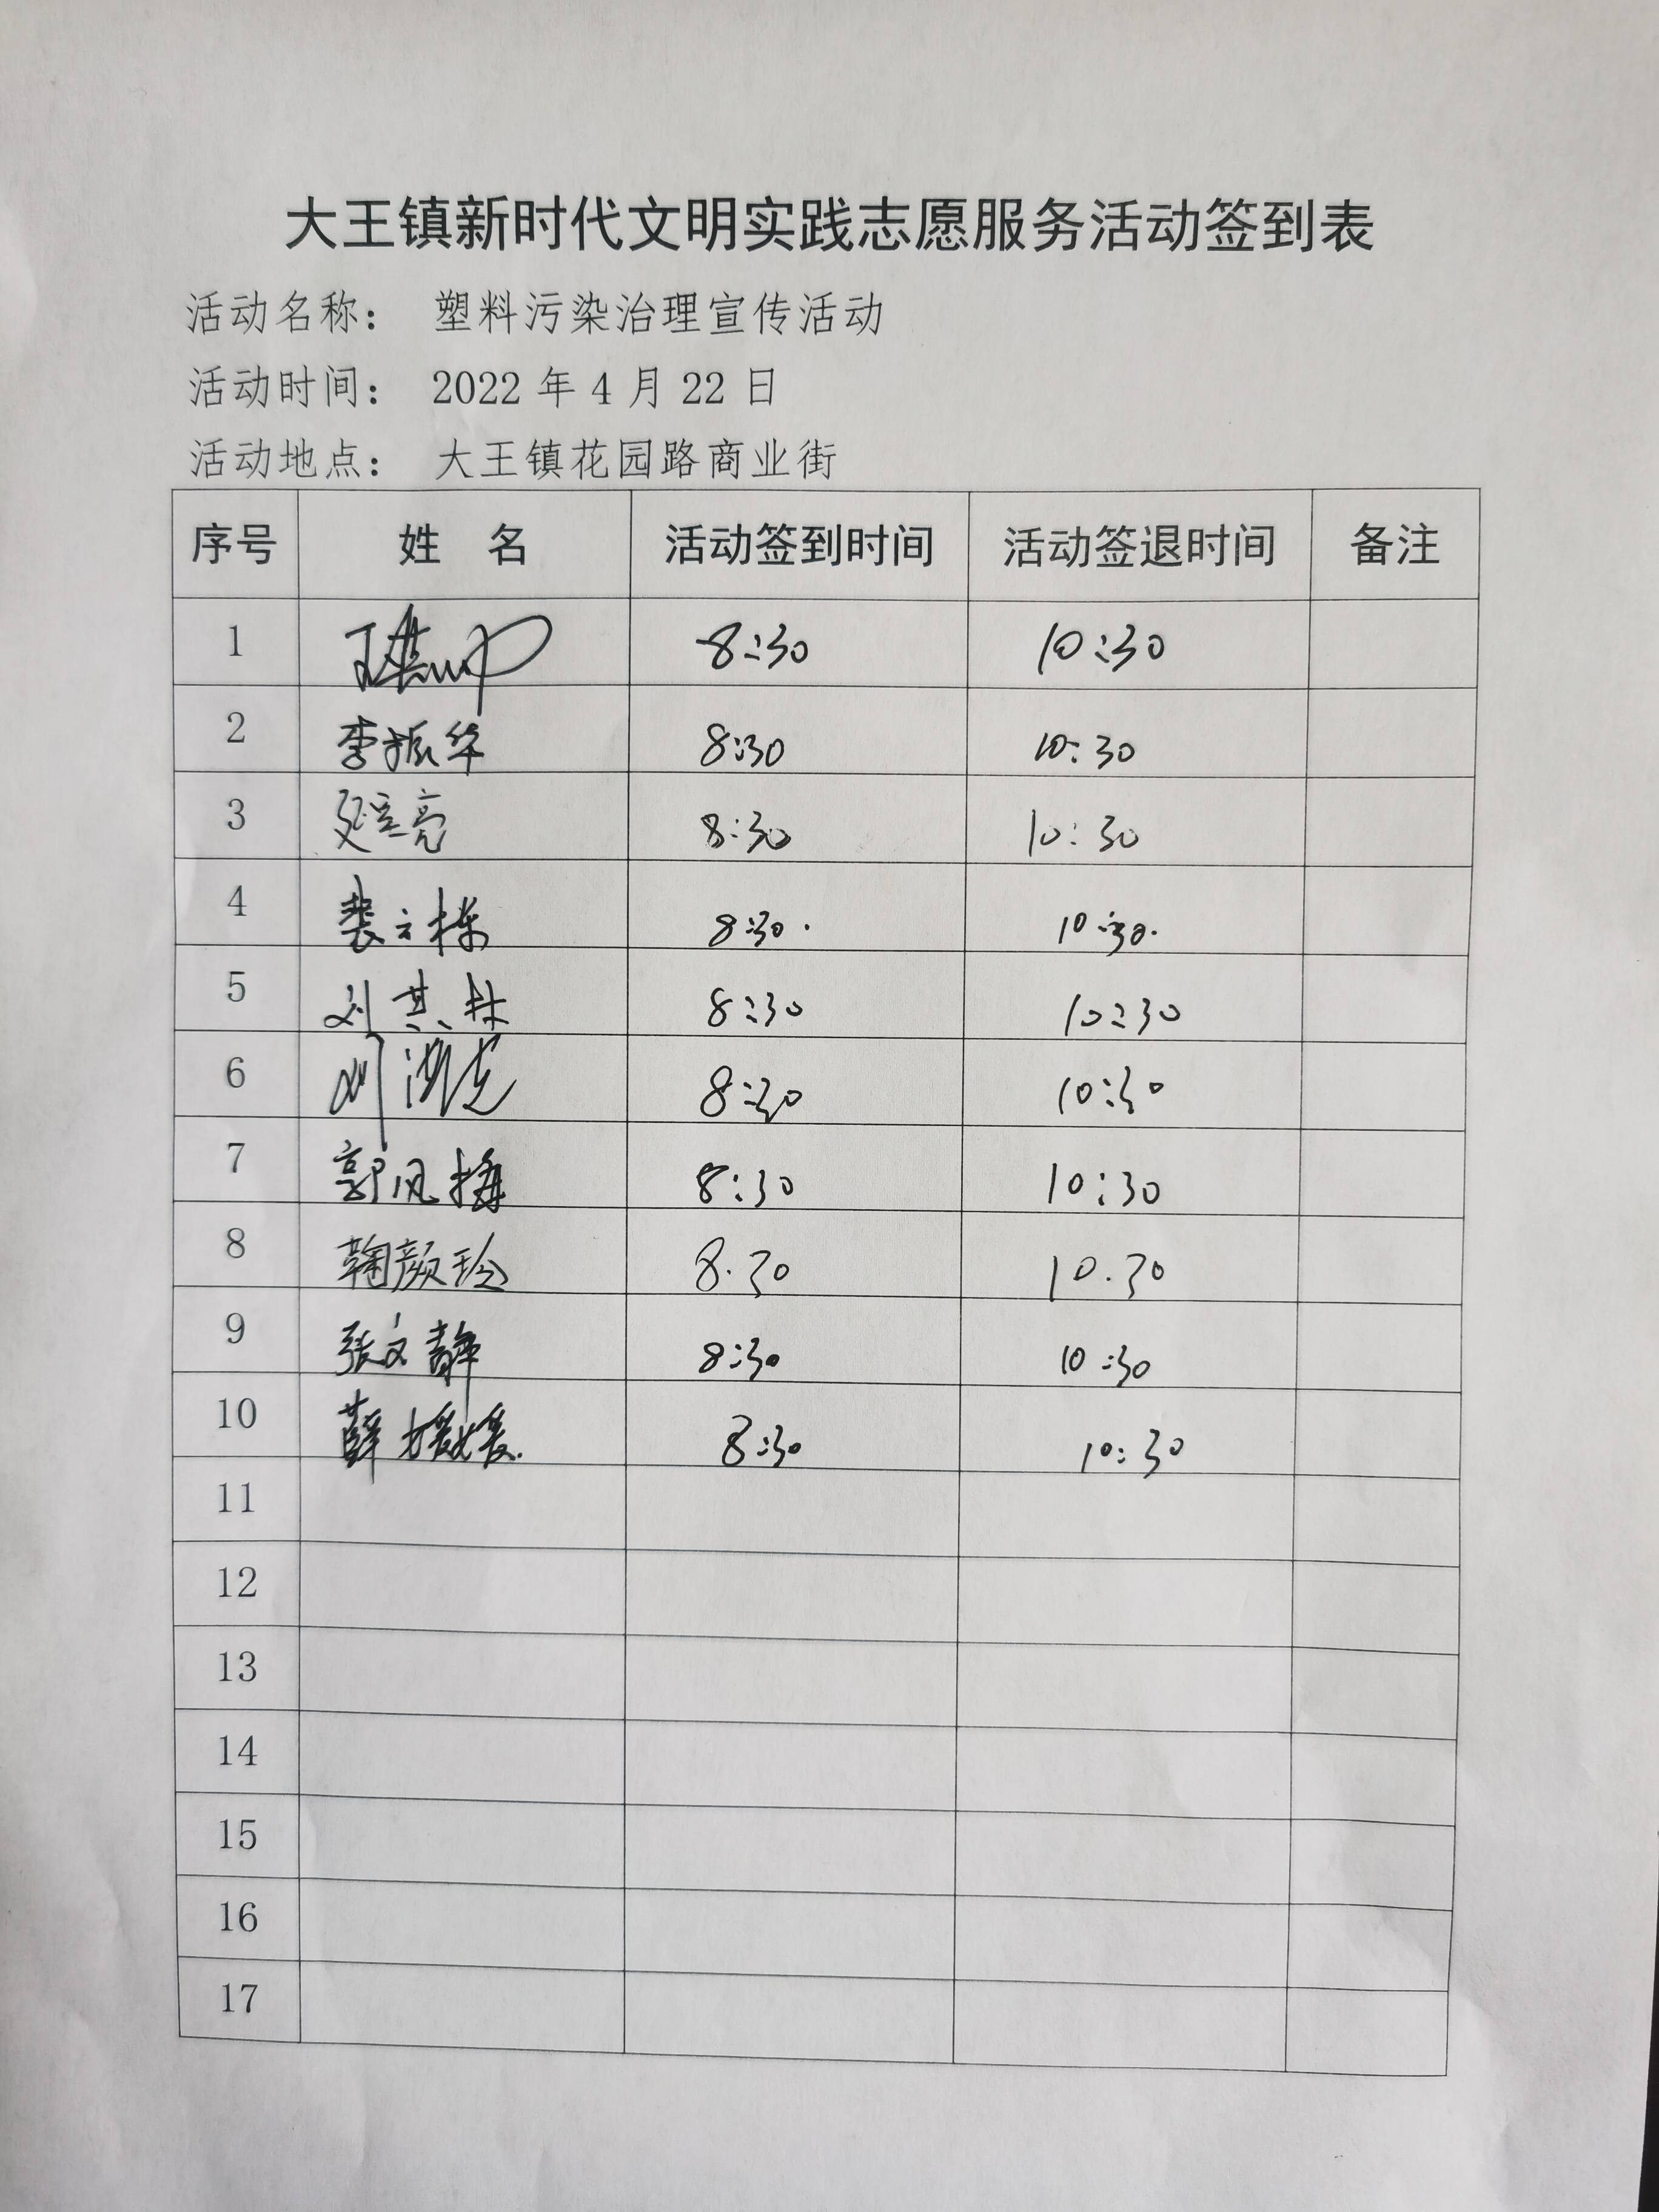 大王镇新时代文明实践志愿服务活动签到表
活动名称： 塑料污染治理宣传活动
活动时间： 2022 年 4 月 22 日
活动地点： 大王镇花园路商业街
序号 姓 名 活动签到时间 活动签退时间 备注
1 8:30 10:30
2 李振华 8:30 10:30
3 8:30 10:30
4 裴立栋 8:30. 10:30.
5 刘其林 8:30 10:30
6 刘 8:30 10:30
7 郭凤梅 8:30 10:30
8 鞠颜玲 8.30 10.30
9 张文静 8:30 10:30
10 薛媛媛. 8:30 10:30
11
12
13
14
15
16
17